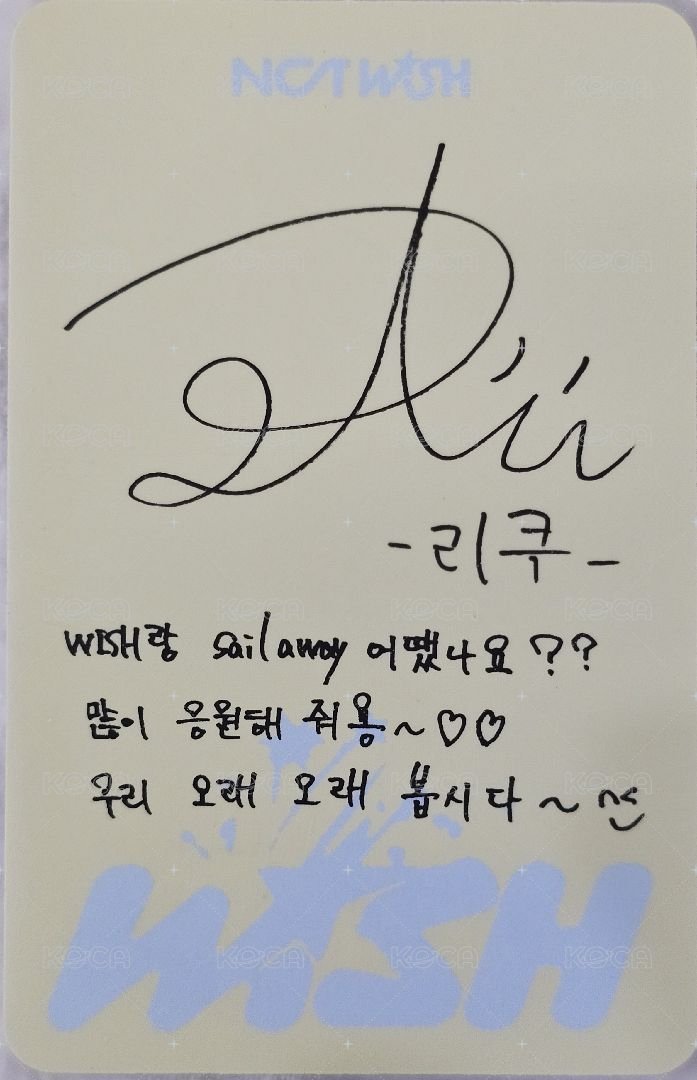 NCT WISH
-리쿠-
WISH랑 sail away 어땠나요??
많이 응원해 줘용~♡♡
우리 오래 오래 봅시다~
WISH
KOCA